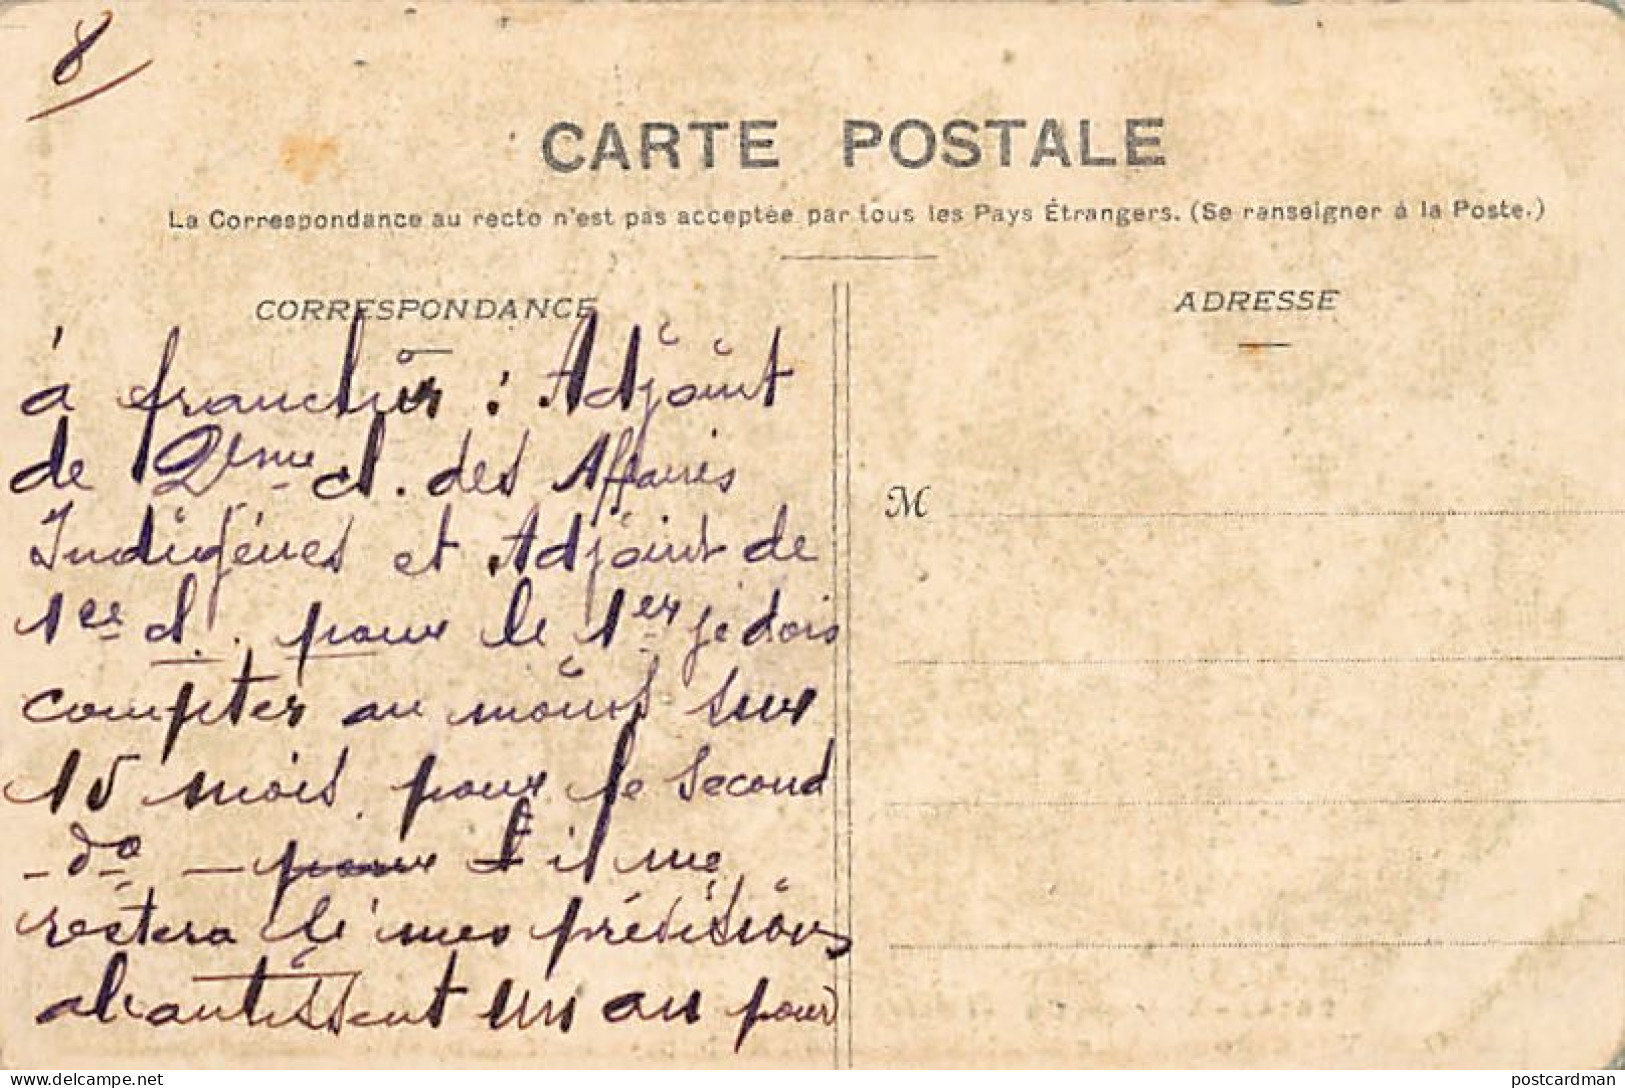 8
CARTE POSTALE
La Correspondance au recto n'est pas acceptée par tous les Pays Étrangers. (Se renseigner à la Poste.)
CORRESPONDANCE
ADRESSE
à franchir : Adjoint
de 2ème cl. des Affaires
Indigènes et Adjoint de
1ère cl. pour le 1er je dois
compter au moins sur
15 mois pour le second
- do - pour il me
restera si mes prévisions
aboutissent un an pour
M
delcampe.net
postcardman